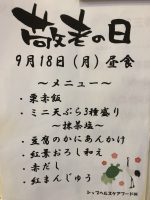 敬老の日
9月18日(月)昼食
~メニュー~
・栗赤飯
・ミニ天ぷら3種盛り
~抹茶塩~
・豆腐のかにあんかけ
・紅葉おろし和え
・赤だし
・紅まんじゅう
シップヘルスケアフード㈱